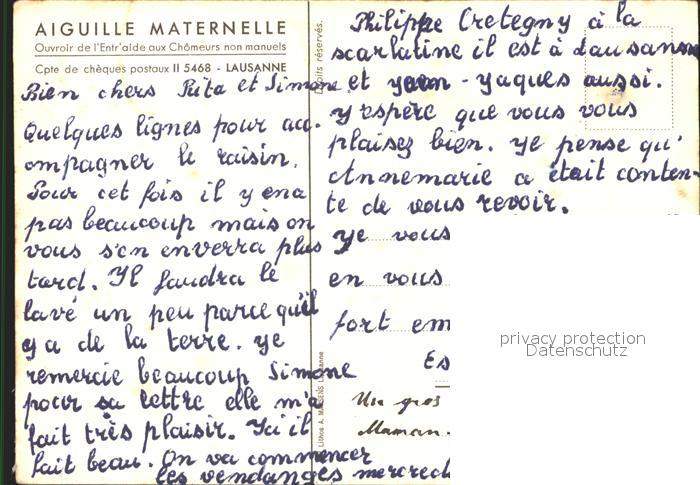 AIGUILLE MATERNELLE
Ouvroir de l'Entr'aide aux Chômeurs non manuels
Cpte de chèques postaux II 5468 - LAUSANNE
Bien chers Rita et Simone
Quelques lignes pour acc.
ompagner le raisin.
Pour cet fois il y en a
pas beaucoup mais on
vous s'en enverra plus
tard. Il faudra le
lavé un peu parce qu'il
y a de la terre. ye
remercie beaucoup Simone
pour sa lettre elle m'a
fait très plaisir. Ici il
fait beau. On va commencer
les vendanges mercredi
Droits réservés.
Philippe Cretegny à la
scarlatine il est à Lausanne
et yean-yaques aussi.
y espère que vous vous
plaisez bien. ye pense qu'
Annemarie a était conten-
te de vous revoir.
ye vous
en vous
fort em
Es
Un gros
Maman.
privacy protection
Datenschutz